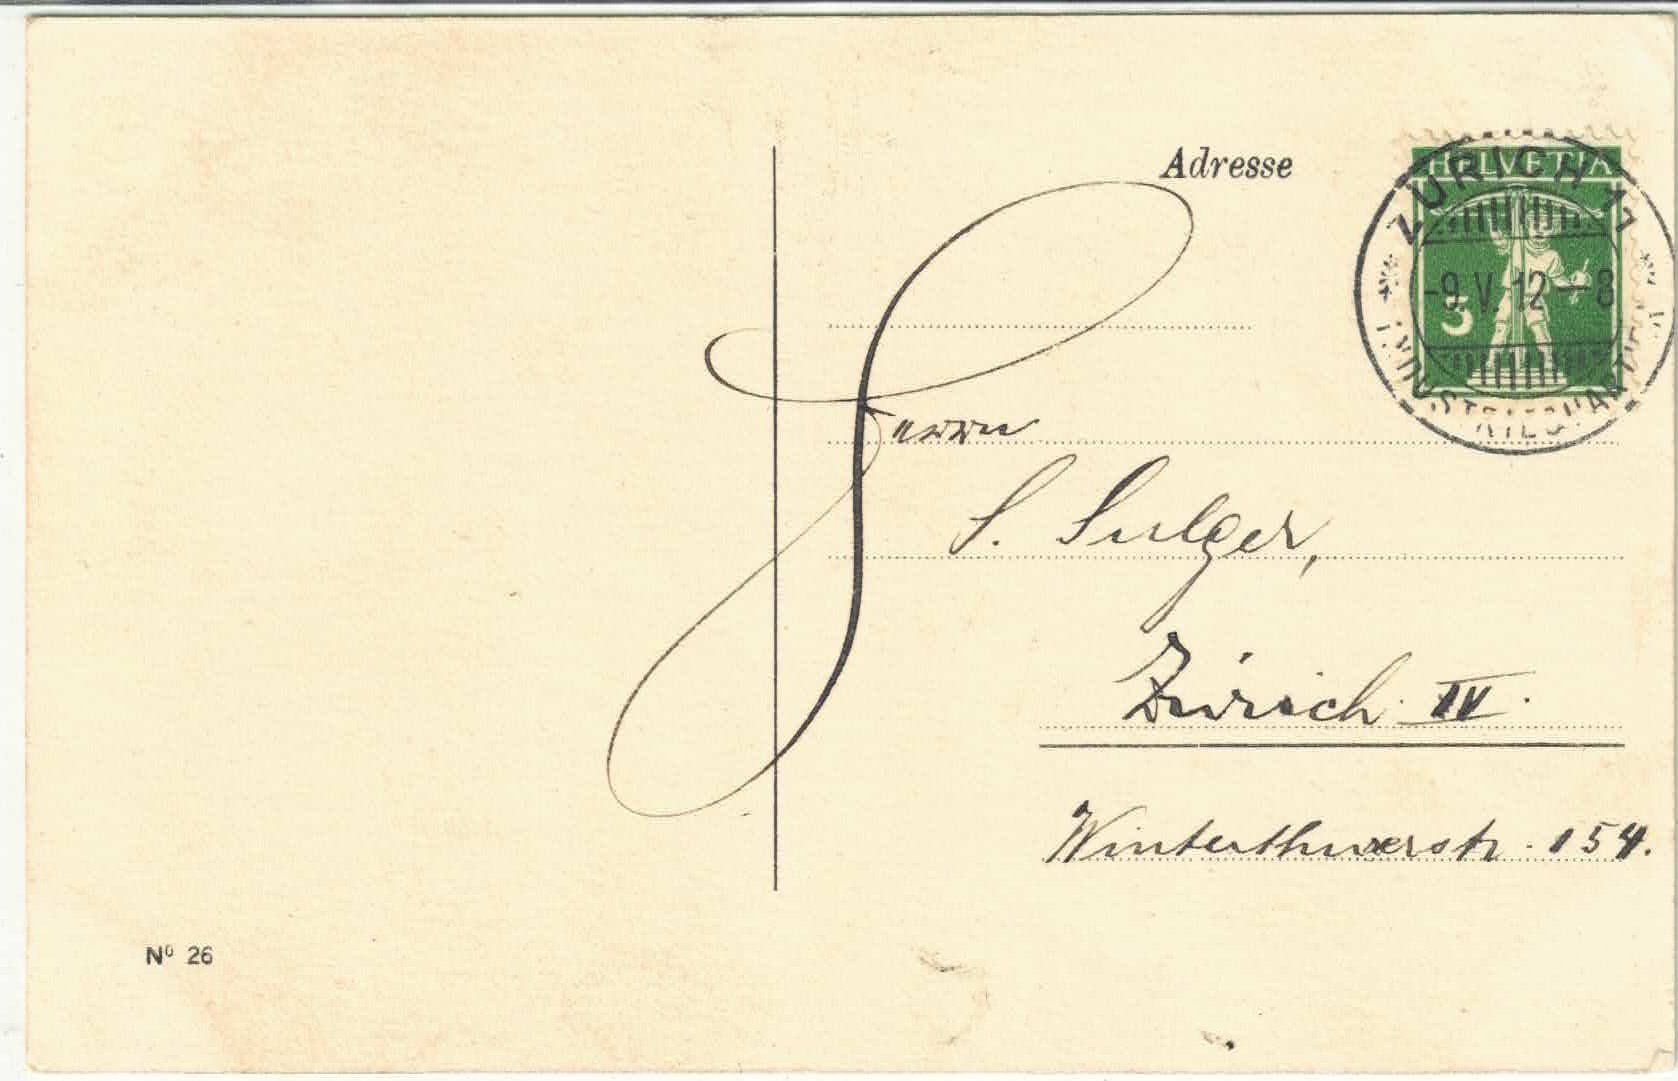 Adresse
HELVETIA
5
ZÜRICH 11
-9.V.12-8
(INDUSTRIEQUARTIER)
Herrn
S. Sulger,
Zürich IV.
Winterthurerstr. 154.
Nº 26